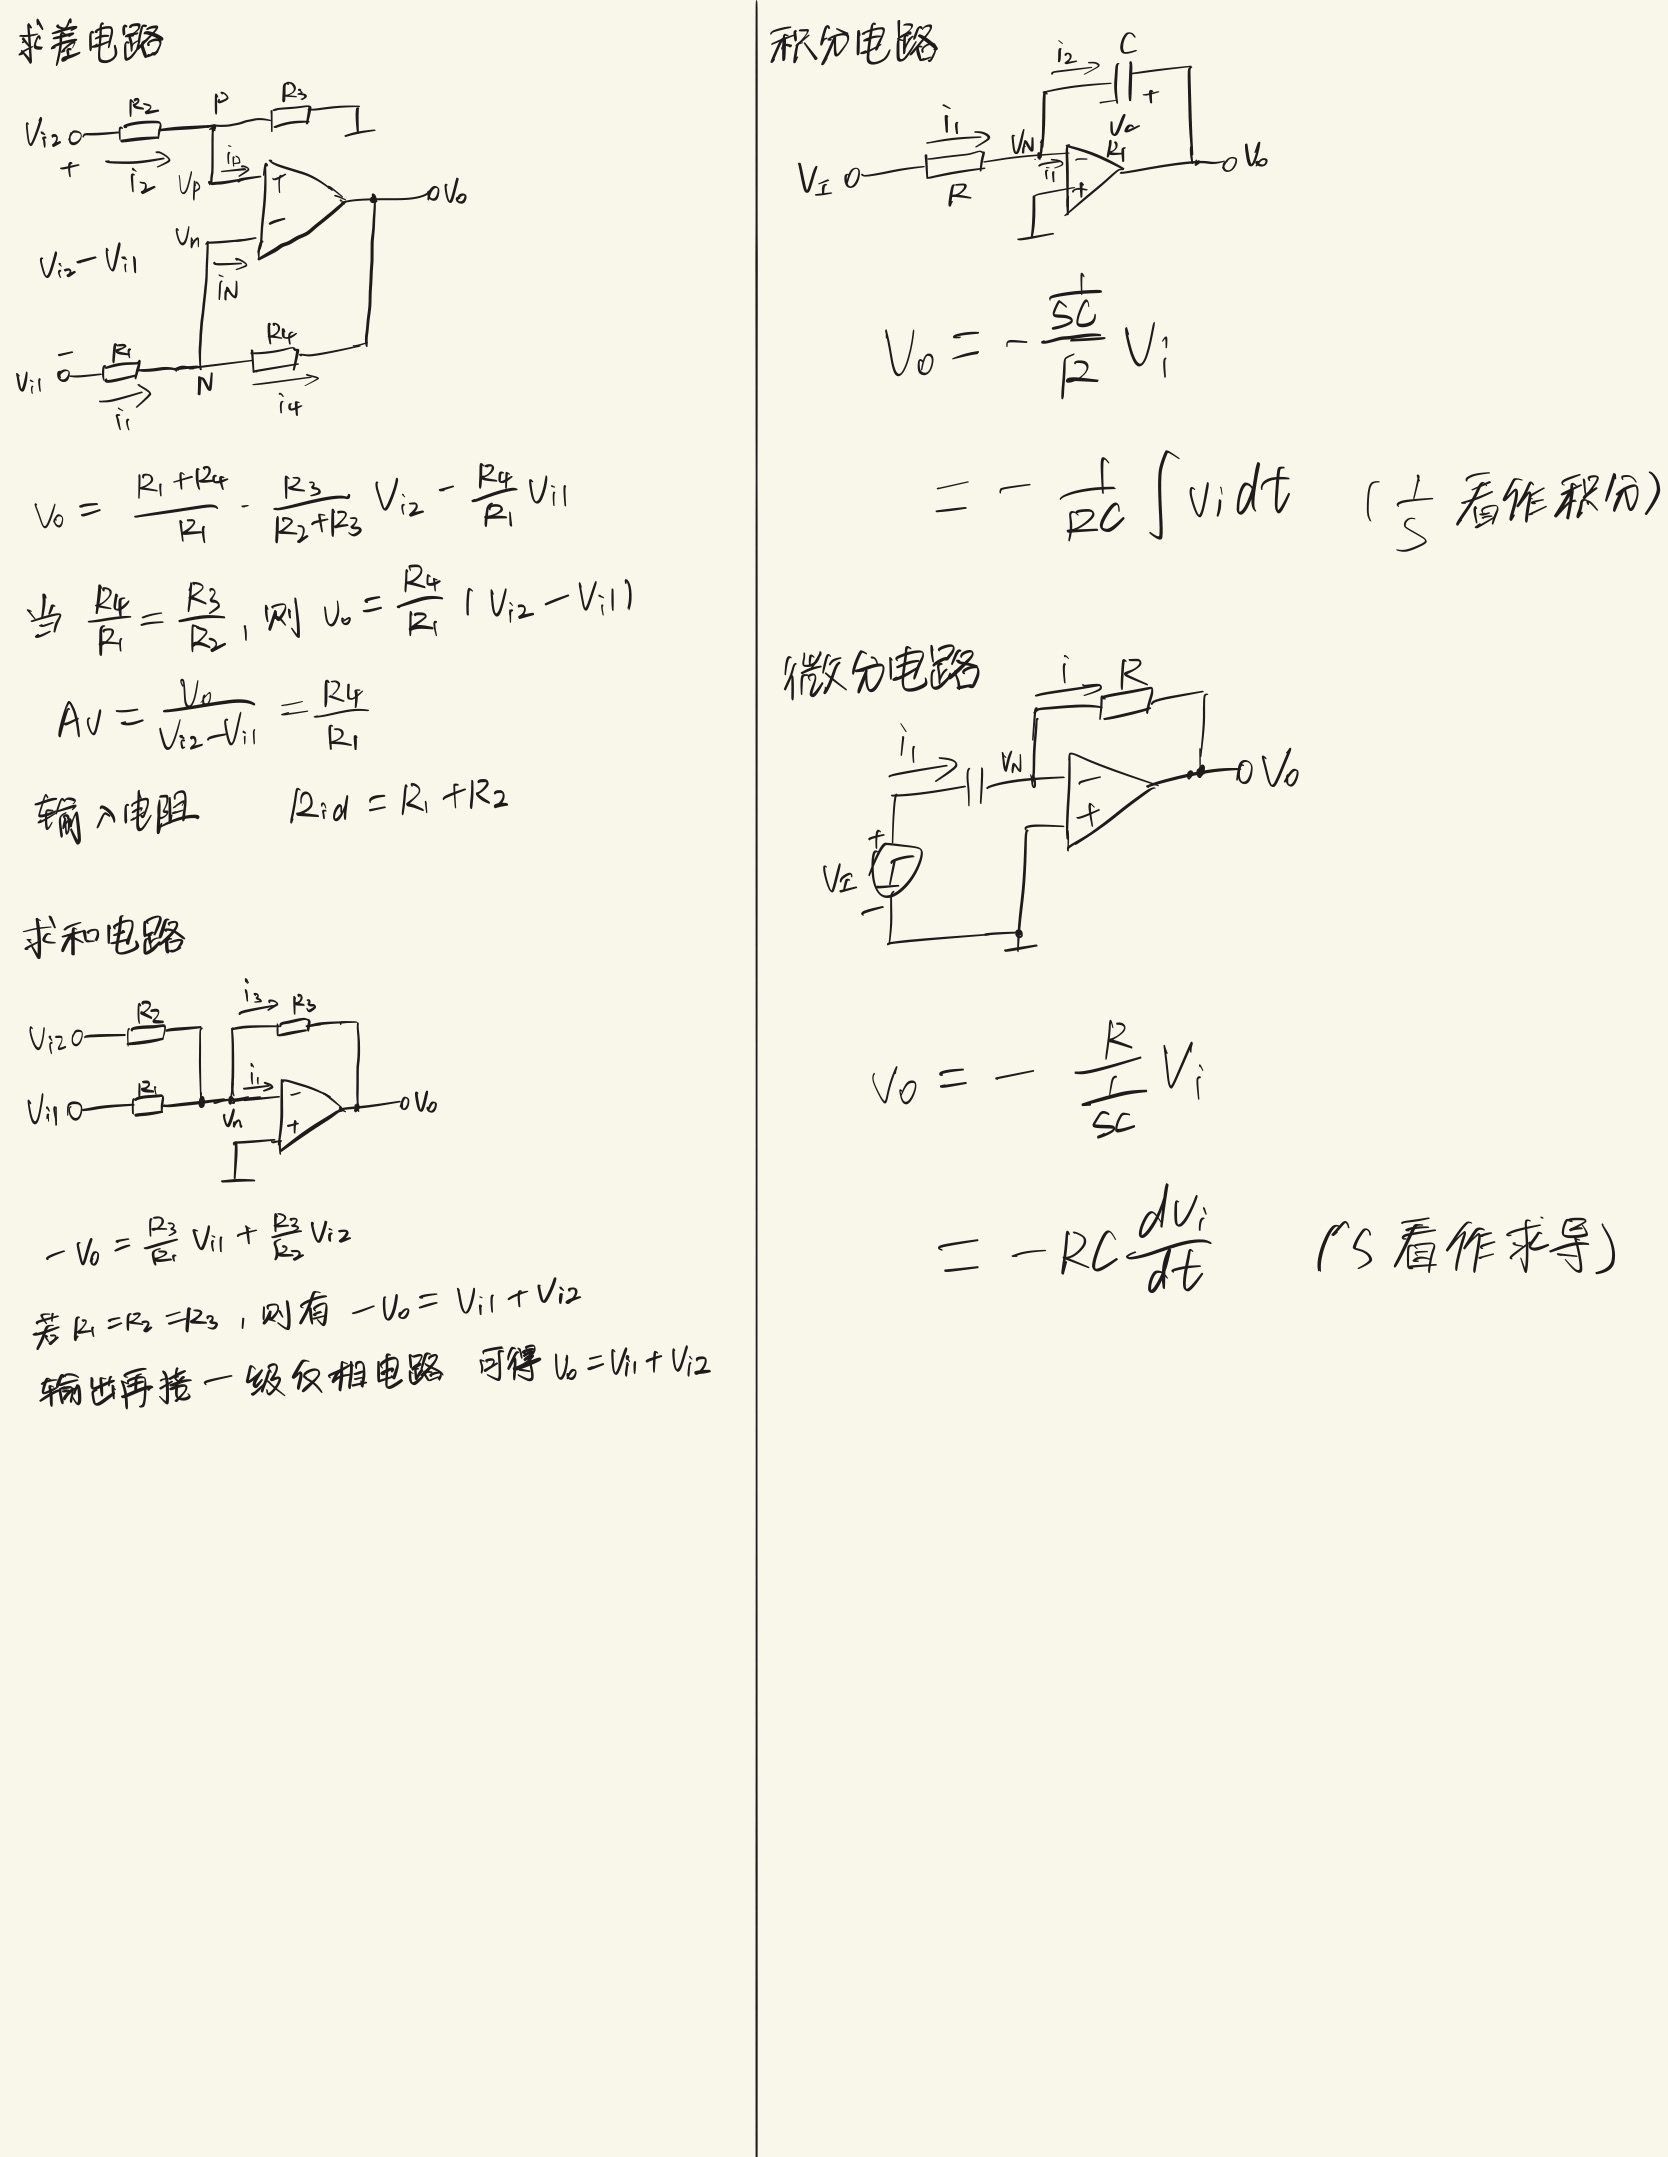 求差电路
R2 P R3
Vi2 + i2 Vp ip + Vo
Vn -
Vi2 - Vi1
iN
- R1 R4
Vi1 i1 N i4
Vo = (R1+R4)/R1 · R3/(R2+R3) Vi2 - R4/R1 Vi1
当 R4/R1 = R3/R2 , 则 Vo = R4/R1 (Vi2 - Vi1)
Av = Vo/(Vi2-Vi1) = R4/R1
输入电阻 Rid = R1 + R2
求和电路
i3 R3
Vi2 R2
Vi1 R1 Vn ii - + Vo
-Vo = R3/R1 Vi1 + R3/R2 Vi2
若 R1 = R2 = R3 , 则有 -Vo = Vi1 + Vi2
输出再接一级反相电路 可得 Vo = Vi1 + Vi2
积分电路
i2 C
- +
VI i1 R VN ii - + Vo
Vo = - (1/SC)/R Vi
= - 1/RC ∫ Vi dt ( 1/S 看作积分)
微分电路
i R
i1 VN - + Vo
VI + -
Vo = - R/(1/SC) Vi
= -RC dVi/dt (S 看作求导)